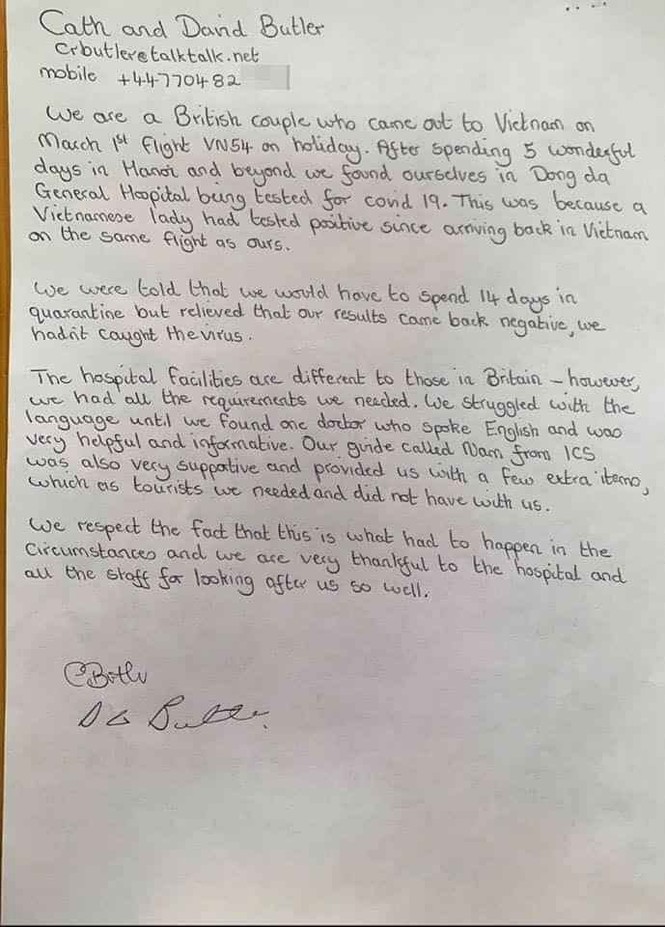 Cath and David Butler
crbutler@talktalk.net
mobile +44770482
We are a British couple who came out to Vietnam on
March 1st flight VN54 on holiday. After spending 5 wonderful
days in Hanoi and beyond we found ourselves in Dong da
General Hospital being tested for covid 19. This was because a
Vietnamese lady had tested positive since arriving back in Vietnam
on the same flight as ours.
We were told that we would have to spend 14 days in
quarantine but relieved that our results came back negative, we
hadn't caught the virus.
The hospital facilities are different to those in Britain – however,
we had all the requirements we needed. We struggled with the
language until we found one doctor who spoke English and was
very helpful and informative. Our guide called Nam from ICS
was also very supportive and provided us with a few extra items,
which as tourists we needed and did not have with us.
We respect the fact that this is what had to happen in the
circumstances and we are very thankful to the hospital and
all the staff for looking after us so well.
CButler
D G Butler.